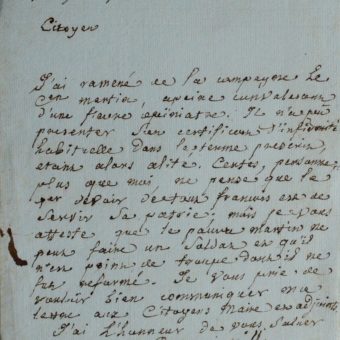 Citoyen
J'ai ramené de la campagne le
Cen martin, apeine convalescent
d'une fievre opiniatre. Il n'a pu
presenter son certificat d'infirmité
habituelle dans le terme
etant alors alité. Certes, personne
plus que moi ne pense que le
devoir de tout francois est de
Servir Sa patrie, mais je vous
atteste que le pauvre martin ne
peut faire un Soldat et qu'il
n'en point de troupe dont il ne
fut reformé. Je vous prie de
vouloir bien communiquer ma
lettre aux Citoyens Maire et adjoints
J'ai l'honneur de vous Saluer